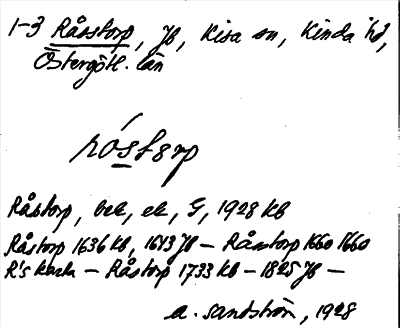 1-3 Råsstorp, Jb, Kisa sn, Kinda hd,
Östergötl. län
róstərp
Råstorp, bek, ek, G, 1928 Kb
Råstorp 1636 Kb, 1643 Jb – Råsstorp 1660 1660
R's karta – Råstorp 1733 Kb – 1825 Jb –
A. Sandström, 1928